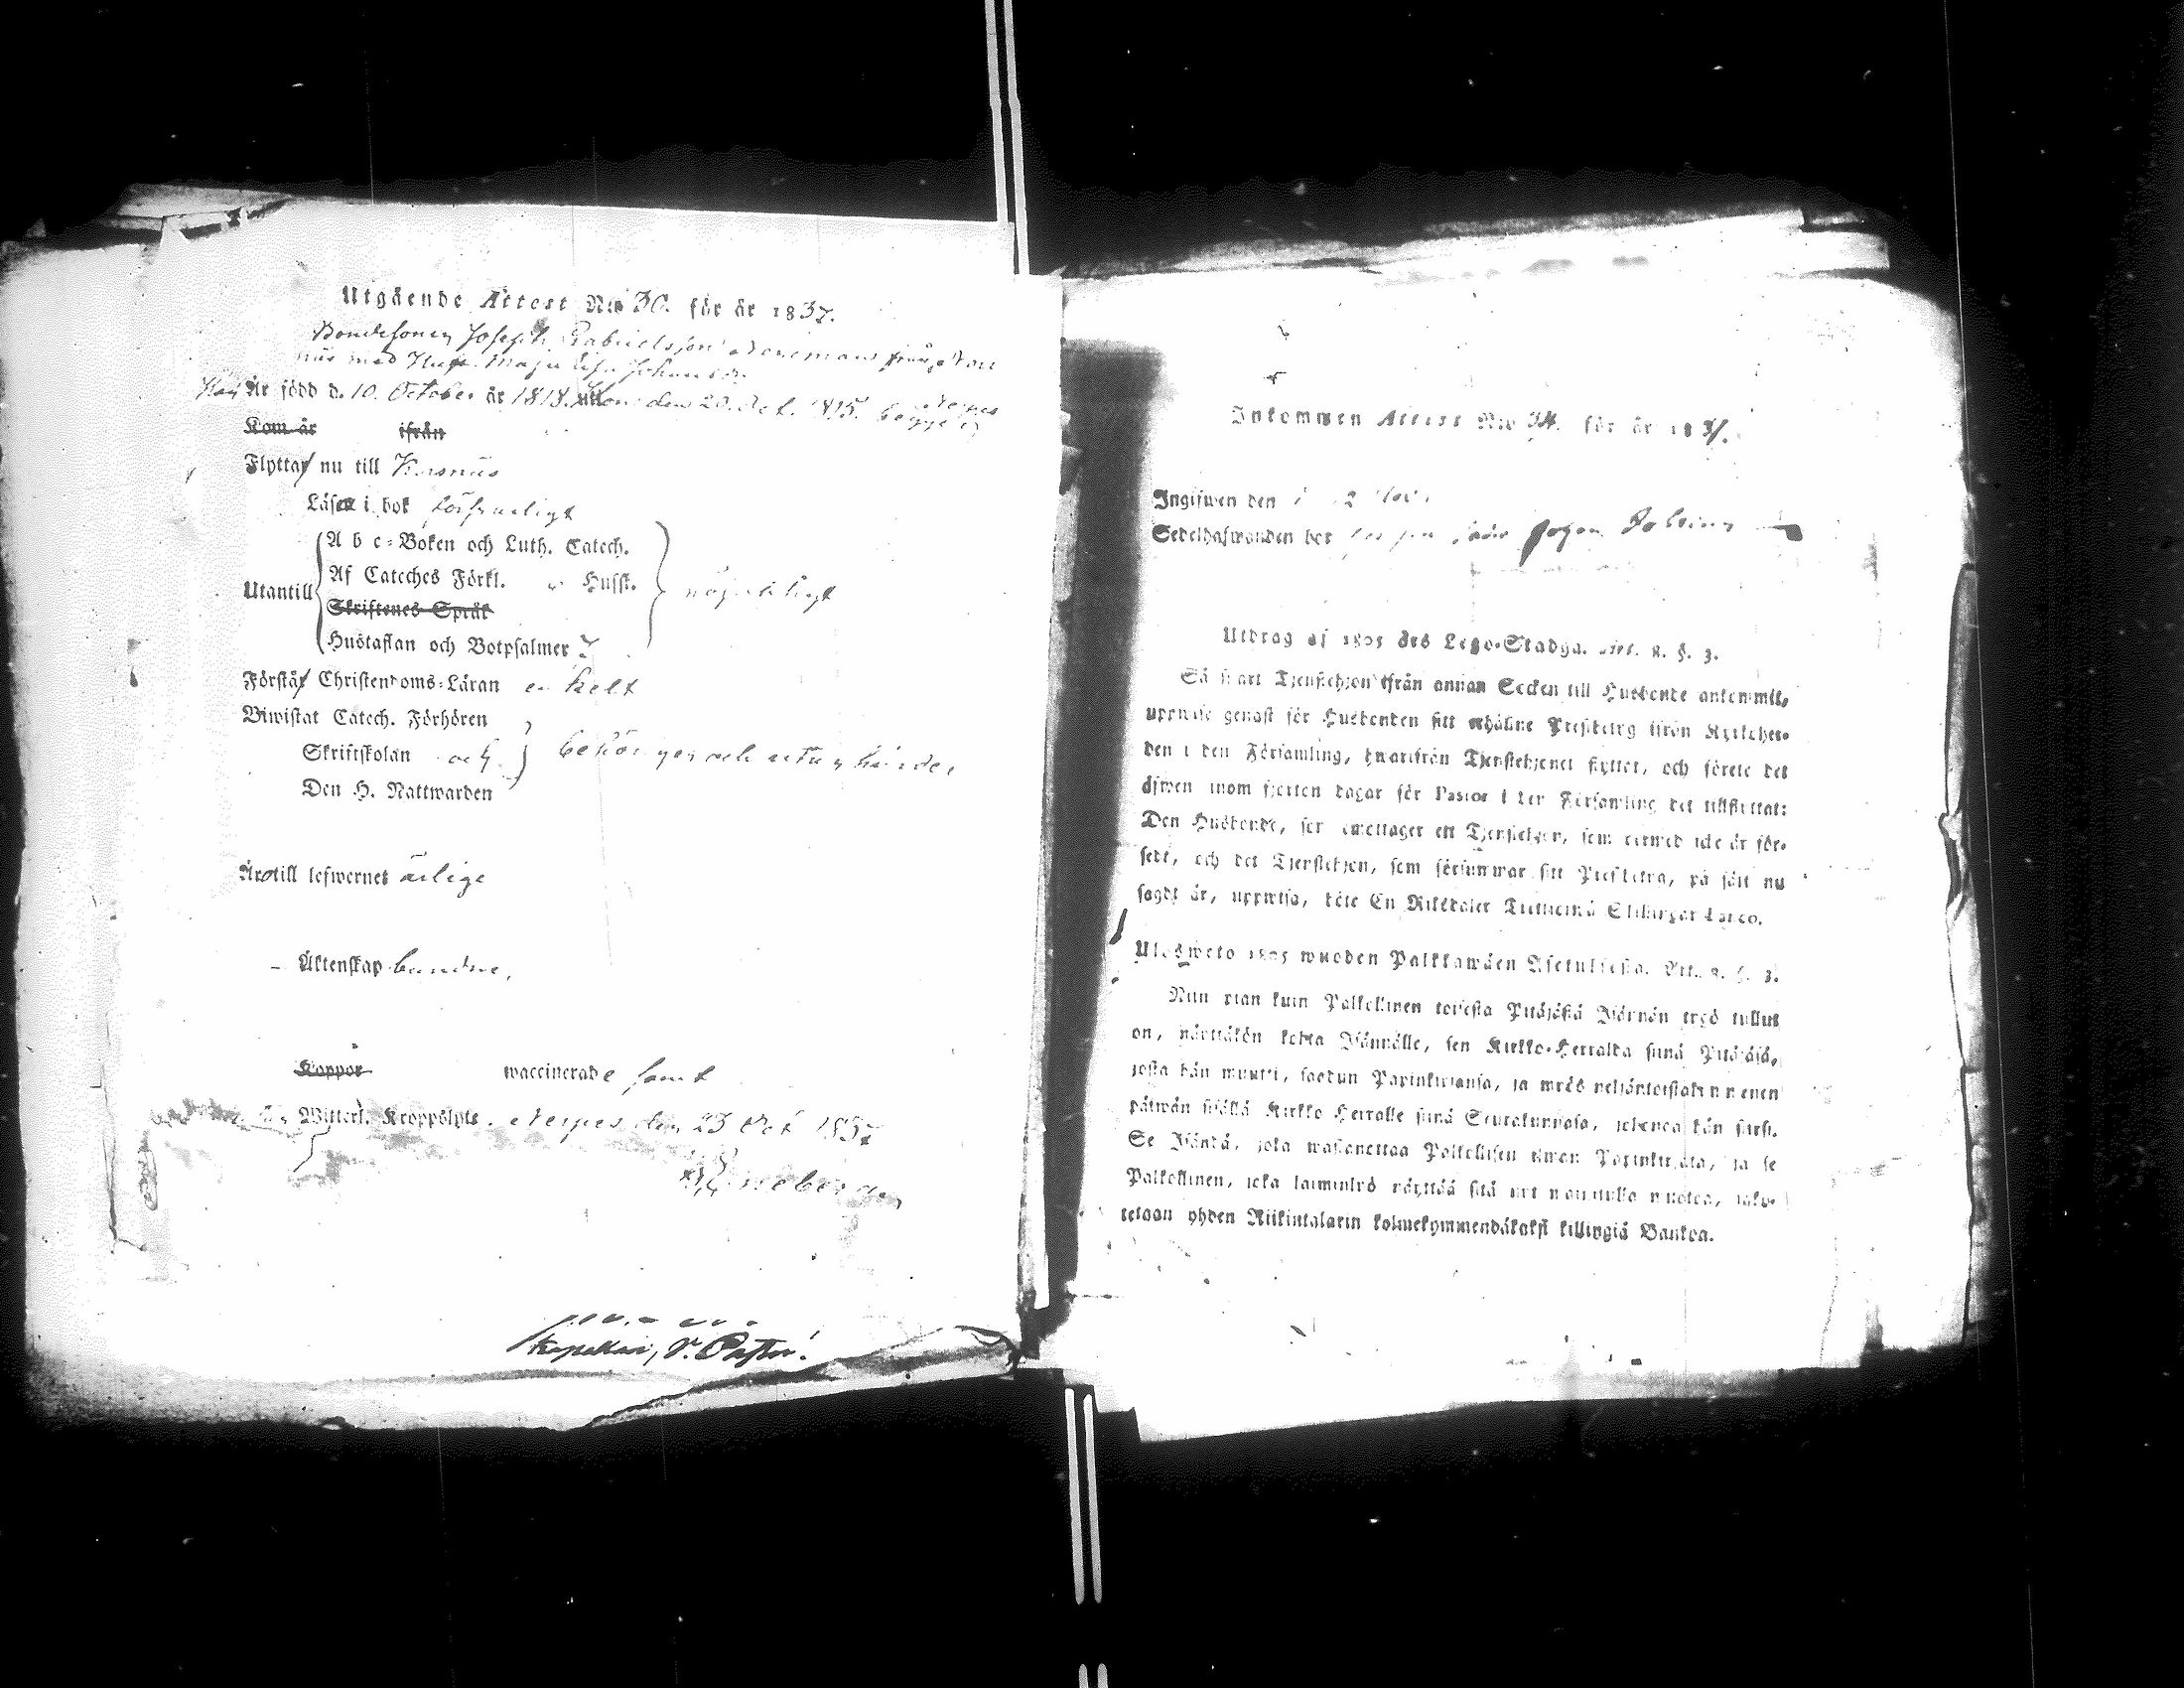 Utgående Attest No 30. för år 1837.
Bondesonen Joseph Gabrielsson Norrman från
med Hust. Maja Lisa
Han Är född d. 10. October år 1818. Hon den 20. Oct. 1815. begge i Nerpes
Kom år ifrån
Flyttar nu till Korsnäs
Läser i bok försvarligt
A b c-Boken och Luth. Catech.
Af Cateches Förkl. Hussk.
Utantill
Skriftenes Språk
Hustaflan och Botpsalmer
nöjaktigt
Förstår Christendoms-Läran enkelt
Biwistat Catech. Förhören
Skriftskolan och
Den H. Nattwarden
Äro till lefwernet ärlige
Äktenskap bundne,
Koppor waccinerade samt
Witterl. Kroppslyte. Nerpes den 23 Oct 1837
Kapellan, V. Pastor.
Inkommen Attest No 34. för år 1837.
Ingifwen den 2 Nov.
Sedelhafwanden bor
Utdrag af 1805 års Lego-Stadga. Art. 2. §. 3.
Så snart Tjenstehjon ifrån annan Socken till Husbonde ankommit,
uppwise genast för Husbonden sitt erhållne Prestbetyg ifrån Kyrkoher-
den i den Församling, hwarifrån Tjenstehjonet flyttat, och förete det
äfwen inom fjorton dagar för Pastor i den Församling det tillflyttat:
Den Husbonde, som emottager ett Tjenstehjon, som dermed icke är för-
sedt, och det Tjenstehjon, som försummar sitt Prestbetyg, på sätt nu
sagdt är, uppwisa, böte En Riksdaler Trettiotwå Skillingar Banco.
Ulosweto 1805 wuoden Palkkawäen Asetuksesta. Art. 2. §. 3.
Niin pian kuin Palkollinen toisesta Pitäjästä Isännän tygö tullut
on, näyttäkön kohta Isännälle, sen Kirkko-Herralda siinä Pitäjäsä,
josta hän muutti, saadun Papinkirjansa, ja myös neljäntoistakymmenen
päiwän sisällä Kirkko Herralle siinä Seurakunnasa, johonga hän siirsi.
Se Isäntä, joka wastanottaa Palkollisen ilman Papinkirjata, ja se
Palkollinen, joka laiminlyö näyttää sitä nyt mainitulla muotoa, sako-
tetaan yhden Riikintalarin kolmekymmendäkaksi killingiä Bankoa.